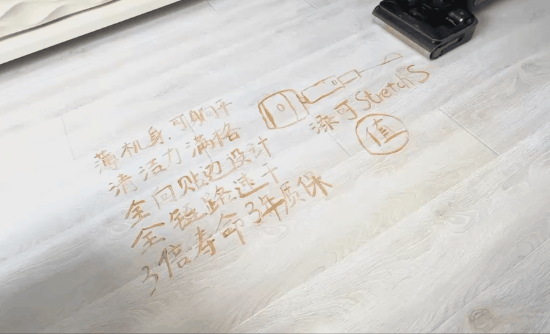 薄机身,可平
清洁力满格
全向贴边设计
全链路速干
3倍寿命3年质保
添可StretchS
值